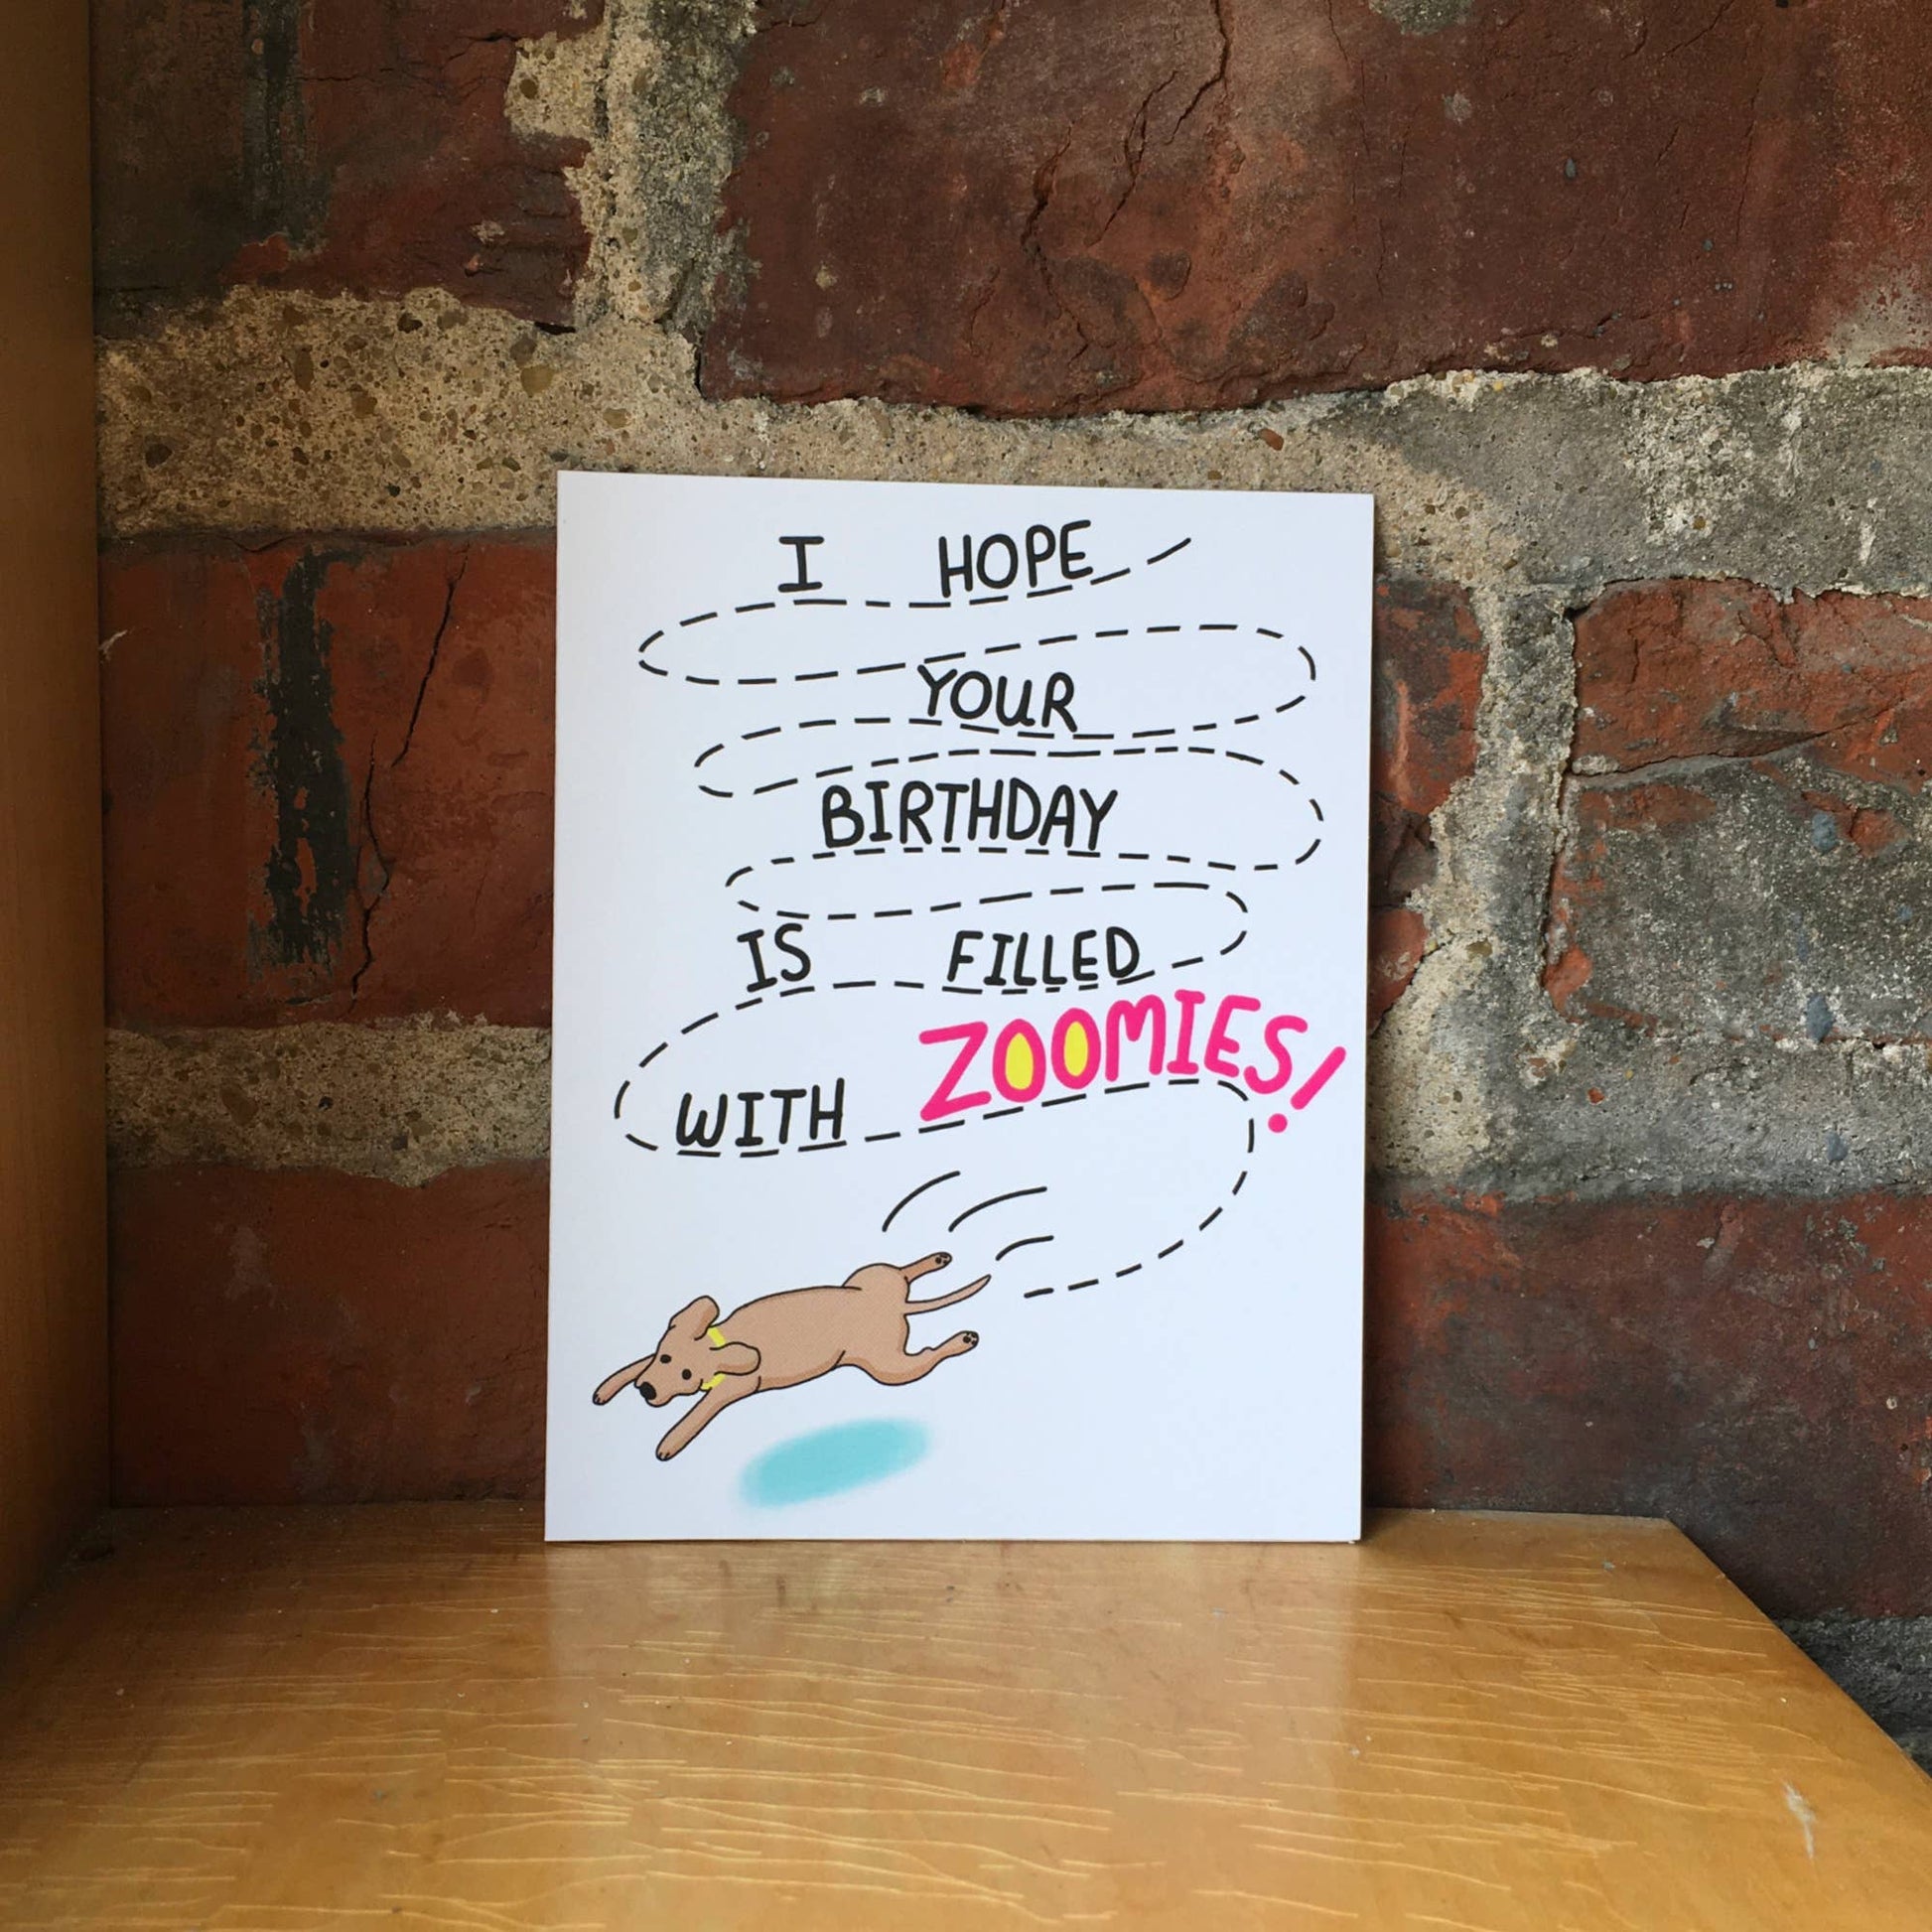 I HOPE
YOUR
BIRTHDAY
IS FILLED
WITH ZOOMIES!